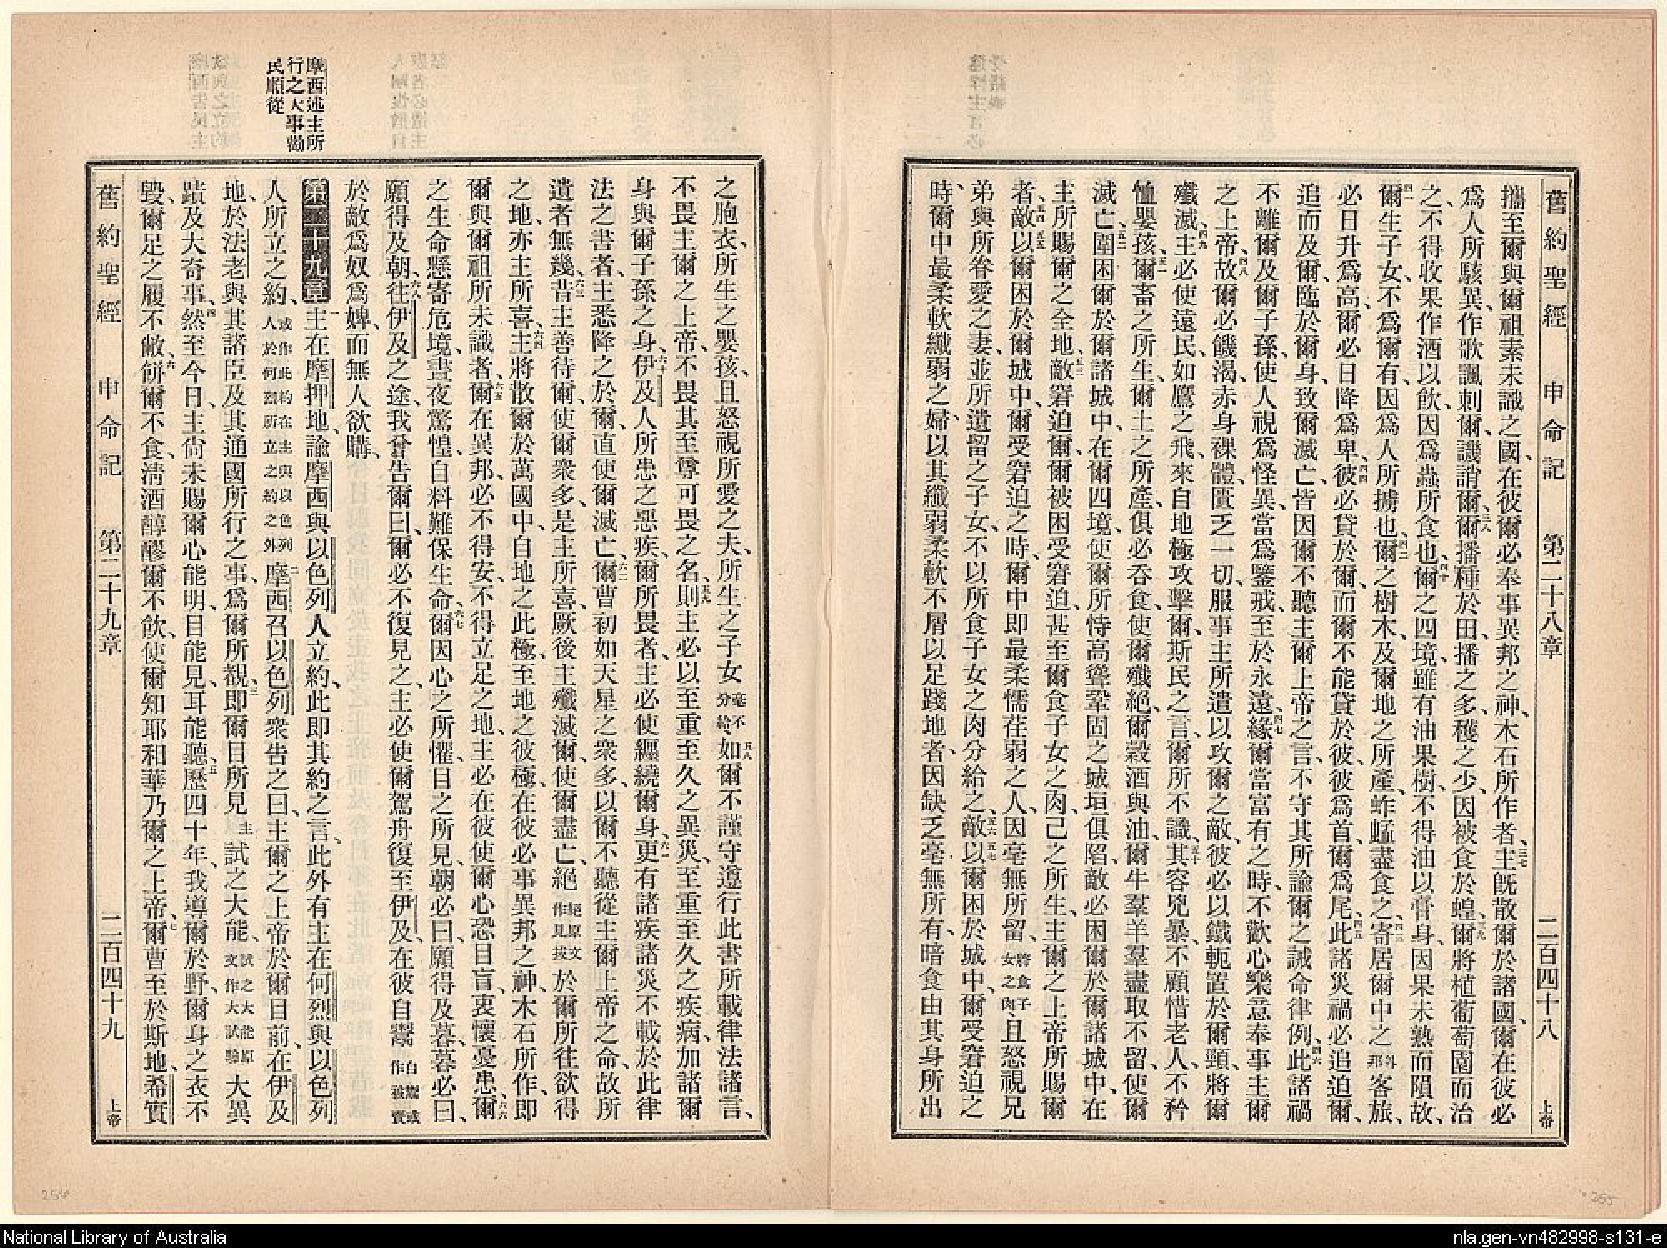 舊約聖經 申命記 第二十八章 二百四十八 上帝
攜至爾與爾祖素未識之國、在彼爾必奉事異邦之神、木石所作者、三七主旣散爾於諸國、爾在彼必
爲人所駭異、作歌諷刺爾、譏誚爾、三八爾播種於田、播之多、穫之少、因被食於蝗、三九爾將植葡萄園而治
之、不得收果作酒以飲、因爲蟲所食也、四十爾之四境、雖有油果樹、不得油以膏身、因果未熟而隕故、
四一爾生子女、不爲爾有、因爲人所擄也、四二爾之樹木、及爾地之所產、蚱蜢盡食之、四三寄居爾中之外邦客旅、
必日升爲高、爾必日降爲卑、四四彼必貸於爾、而爾不能貸於彼、彼爲首、爾爲尾、四五此諸災禍必追迫爾、
追而及爾、臨於爾身、致爾滅亡、皆因爾不聽主爾上帝之言、不守其所諭爾之誡命律例、四六此諸禍
不離爾及爾子孫、使人視爲怪異、當爲鑒戒、至於永遠、四七緣爾當富有之時、不歡心樂意奉事主爾
之上帝、四八故爾必饑渴、赤身裸體、匱乏一切、服事主所遣以攻爾之敵、彼必以鐵軛置於爾頸、將爾
殲滅、四九主必使遠民、如鷹之飛、來自地極攻擊爾、斯民之言、爾所不識、五十其容兇暴、不顧惜老人、不矜
恤嬰孩、五一爾畜之所生、爾土之所產、俱必吞食、使爾殲絕、爾穀酒與油、爾牛羣羊羣盡取不留、使爾
滅亡、五二圍困爾於諸城中、在爾四境、使爾所恃高聳鞏固之城垣俱陷、敵必困爾於爾諸城中、在
主所賜爾之全地、五三敵窘迫爾、爾被困受窘迫、甚至爾食子女之肉、己之所生、主爾之上帝所賜爾
者、五四五五敵以爾困於爾城中、爾受窘迫之時、爾中卽最柔懦荏弱之人、因毫無所留、將食子女之肉且怒視兄
弟與所眷愛之妻、並所遺留之子女、不以所食子女之肉分給之、五六五七敵以爾困於城中、爾受窘迫之
時、爾中最柔軟纖弱之婦、以其纖弱柔軟不屑以足踐地者、因缺乏毫無所有、暗食由其身所出
摩西述主所
行之大事勸
民順從
之胞衣、所生之嬰孩、且怒視所愛之夫、所生之子女毫不分給、五八如爾不謹守遵行此書所載律法諸言、
不畏主爾之上帝、不畏其至尊可畏之名、五九則主必以至重至久之異災、至重至久之疾病、加諸爾
身與爾子孫之身、六十伊及人所患之惡疾、爾所畏者、主必使纏繞爾身、六一更有諸疾諸災不載於此律
法之書者、主悉降之於爾、直使爾滅亡、六二爾曹初如天星之衆多、以爾不聽從主爾上帝之命、故所
遺者無幾、六三昔主善待爾、使爾衆多、是主所喜、厥後主殲滅爾、使爾盡亡絕絕原文作見拔於爾所往欲得
之地、亦主所喜、六四主將散爾於萬國中、自地之此極、至地之彼極、在彼必事異邦之神、木石所作、卽
爾與爾祖所未識者、六五爾在異邦、必不得安、不得立足之地、主必在彼使爾心恐目盲、衷懷憂患、六六爾
之生命懸寄危境、晝夜驚惶、自料難保生命、六七爾因心之所懼、目之所見、朝必曰、願得及暮、暮必曰、
願得及朝、六八往伊及之途、我曾告爾曰、爾必不復見之、主必使爾駕舟復至伊及、在彼自鬻自鬻或作被賣
於敵爲奴爲婢、而無人欲購、
第二十九章 一主在摩押地諭摩西與以色列人立約、此卽其約之言、此外有主在何烈與以色列
人所立之約、或作此約在主與以色列人於何烈所立之約之外二摩西召以色列衆告之曰、主爾之上帝於爾目前、在伊及
地、於法老與其諸臣、及其通國所行之事、爲爾所觀、三卽爾目所見主試之大能、試之大能原文作大試驗大異
蹟及大奇事、四然至今日、主尙未賜爾心能明、目能見、耳能聽、五歷四十年、我導爾於野、爾身之衣不
毀、爾足之履不敝、六餅爾不食、清酒醇醪爾不飲、使爾知耶和華乃爾之上帝、七爾曹至於斯地、希實
舊約聖經 申命記 第二十九章 二百四十九 上帝
256
255
National Library of Australia
nla.gen-vn482998-s131-e